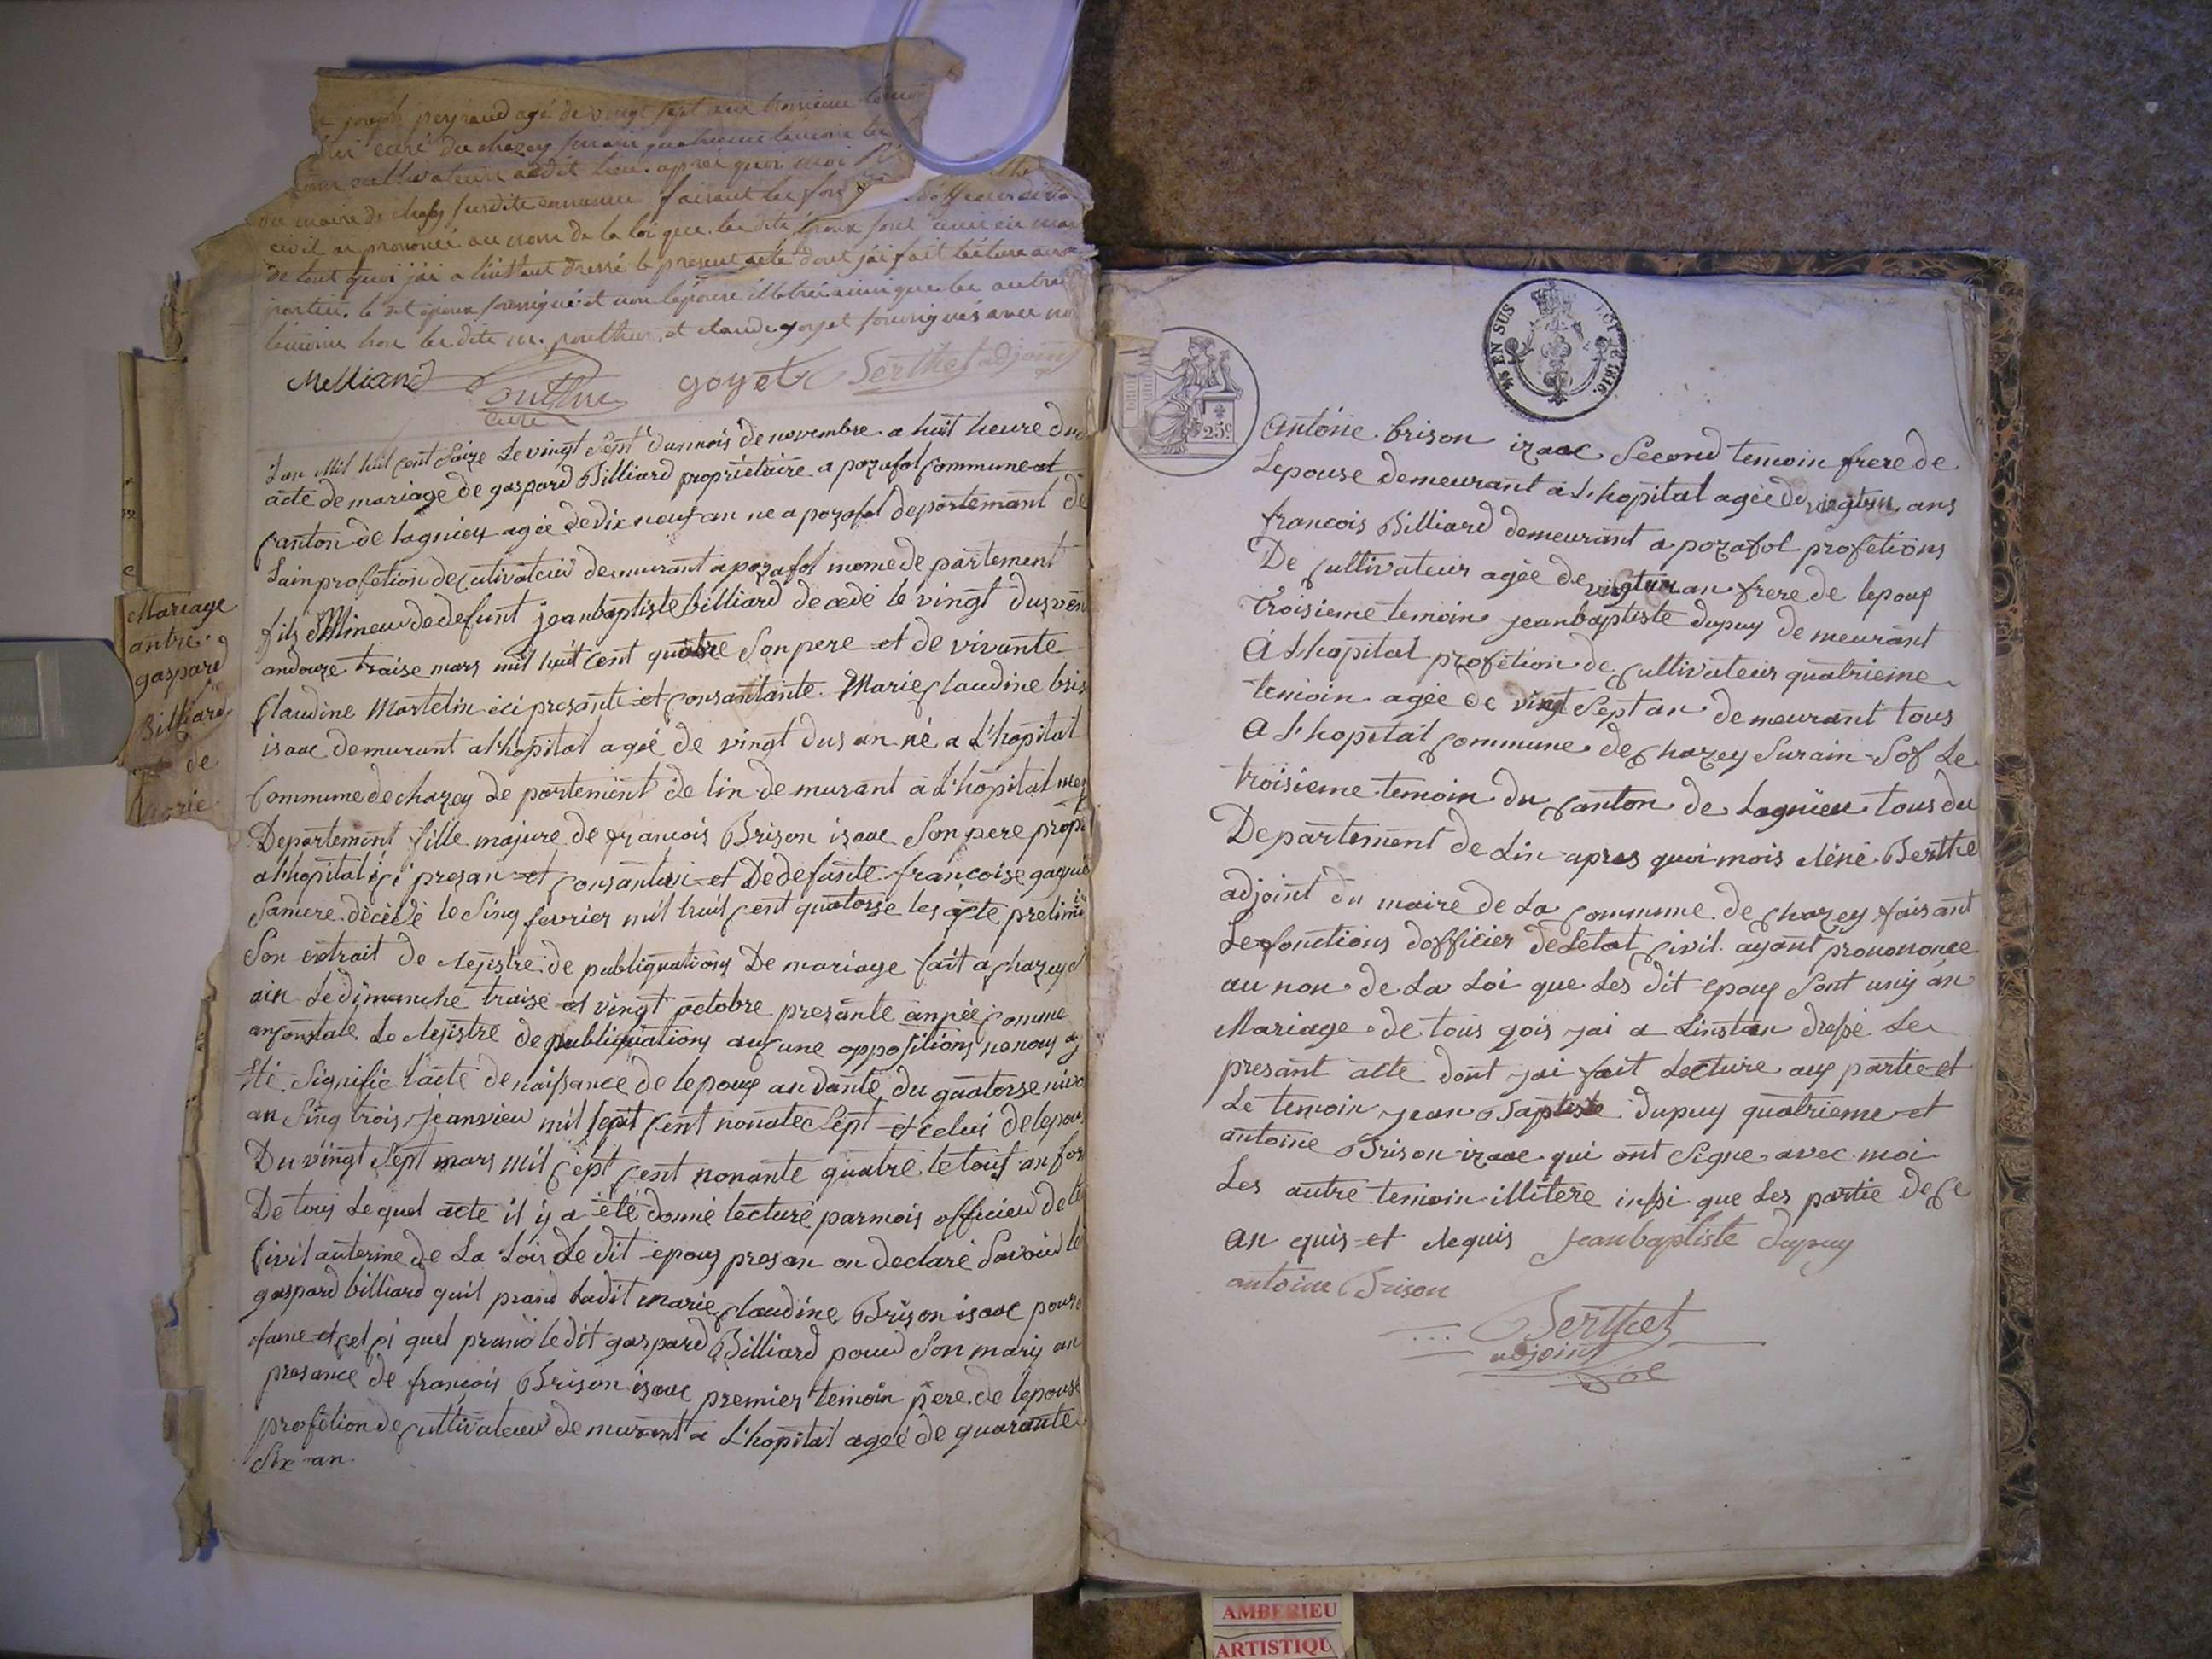 joseph peynaud agé de vingt sept ans troisieme temoin
curé du chazey surain quatrieme temoin les
cultivateurs audit lieu. apres quoi moi
du maire de chazey susdite commune faisant les fon
civil ai prononcé au nom de la loi que les dits époux sont unis en mar
de tout quoi j'ai a l'instant dressé le present acte dont j'ai fait lecture aux
parties. le dit époux soussigné et non l'épouse illetrée ainsi que les autres
témoins hors les dits mr. pouthur et claude goyet soussignés avec no
Melliand Pouthur goyet Berthet adjoint
curé
Mariage
antre
gaspard
Billiard
de
Marie
L'an Mil huit Cent Saize Le vingt Sept dumois de novembre a huit heure du
acte de mariage de gaspard Billiard propriétaire a pozafol Commune et
Canton de lagnieu agée dedix neuf an ne a pozafol departemant de
Lain profetion de Cultivateur demurant a pozafol meme de partement
fils Mineur dedefunt jeanbaptiste billiard decedé le vingt dus ven
andouze traise mars mil huit Cent quatre Son pere et de vivante
Claudine Martelin ici presante et Consantante. Marie Claudine bris
isaac demurant a lhopital agéé de vingt dus an né a L'hopital
Commune de chazey de partement de lin de murant a L'hopital mem
Departement fille majure de francois Brison isaac Son pere propi
a lhopital iCi presan et Consantan et De defunte francoise gagne
Samere décédé le Sinq fevrier mil huit Cent quatorse les acte prelimi
Son extrait de Rejistre de publiquations De mariage fait a Chazey S
ain Le dimanche traise et vingt octobre presante année Comme
anConstate Le Rejistre de publiquations auCune oppositions nenous a
été Signifié lacte denaissance de lepoux andante du quatorse nivo
an Sinq trois Jeanvieu mil sept Cent nonate Sept et Celui de lepou
Du vingt Sept mars mil Cept Cent nonante quatre le tout an for
De tous Le quel acte il y a été donné lecture parmois officieu de le
Civil anterme de La Loir Le dit epoux presan on declaré Savoir le
gaspard billiard quil prand Ladit marie Claudine Brison isaac pour
fame et Cel Ci quel prand le dit gaspard Billiard pour Son mary an
presance de francois Brison isaac premier temoin pere de lepouse
profetion de Cultivateur de murant a L'hopital ageé de quarante
Six an
¼ EN SUS LOI DE 1816.
25c
Antoine brison izaac Second temoin frere de
Lepouse demeurant a L'hopital agée de vingtun ans
francois Billiard demeurant a pozafol profetions
De Cultivateur agée de vingtun an frere de lepoux
troisieme temoin jeanbaptiste dupuy de meurant
A L'hopital profétion de Cultivateur quatrieme
temoin agée de vingt Sept an demeurant tous
a L'hopital Commune de Chazey Surain Sof Le
troisieme temoin du Canton de Lagnieu tous du
Departement de Lin apres quoi mois Réné Berthe
adjoint du maire de La Commune de Chazey faisant
Le fonctions dofficier de Letat Civil ayant pronononce
au non de La Loi que Les dit epoux Sont uniy an
Mariage de tous qois jai a Linstan dressé Le
presant acte dont jai fait Lecture aux partie et
Le temoin jean Baptiste dupuy quatrieme et
antoine Brison izaac qui ont Signe avec moi
Les autre temoin illitere inssi que Les partie de Ce
an quis et Requis jeanbaptiste dupuy
antoine Brison
Berthet
adjoint
AMBERIEU
ARTISTIQU